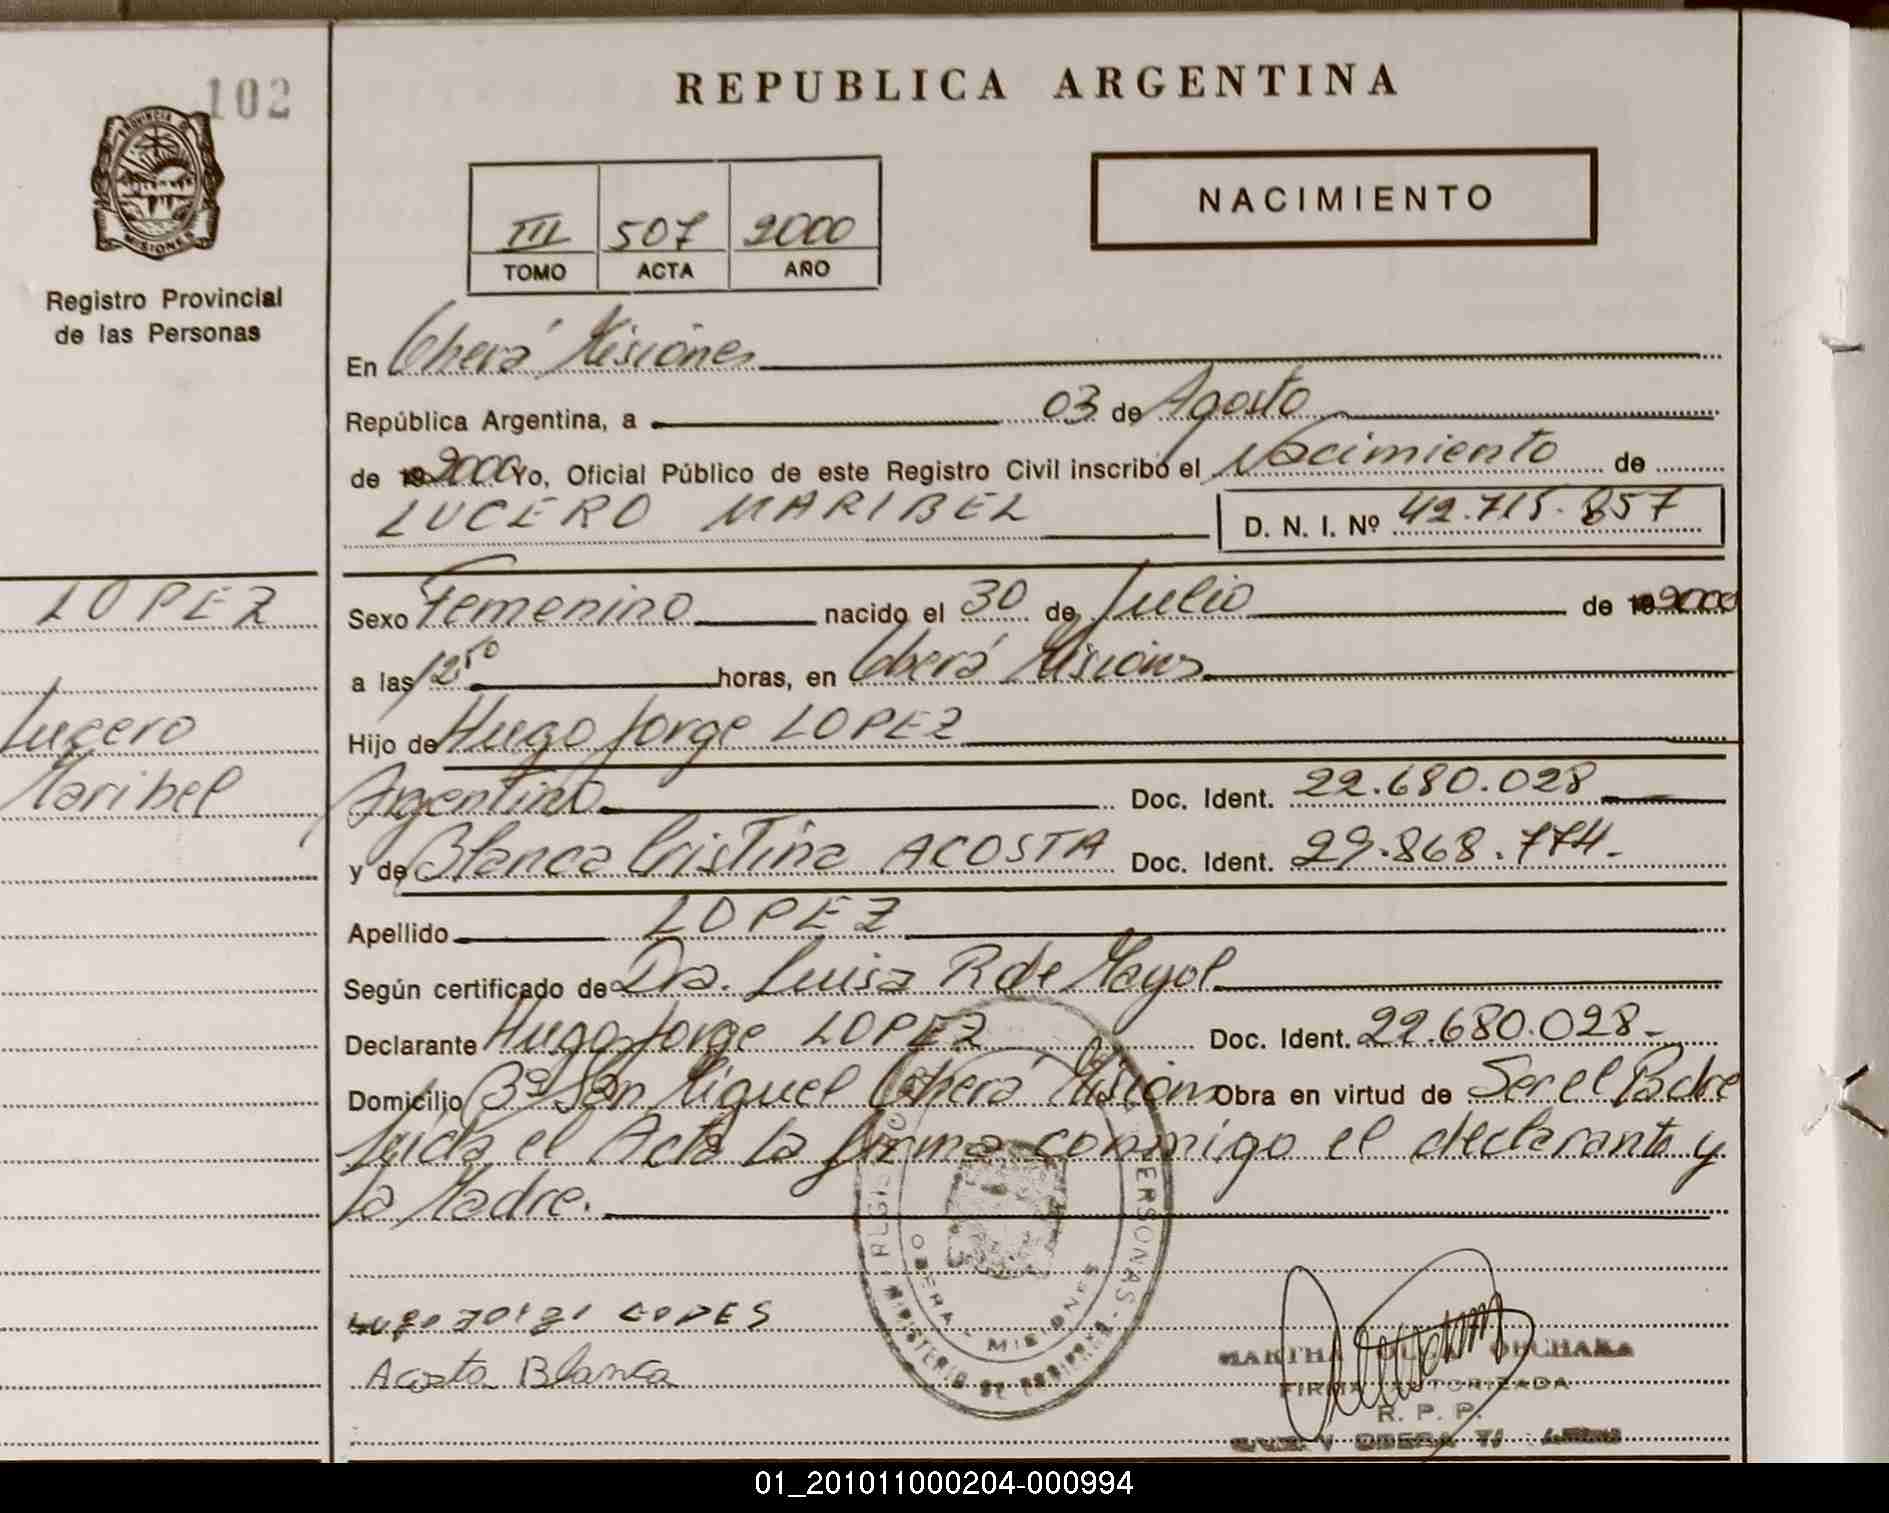 102
PROVINCIA DE
MISIONES
Registro Provincial
de las Personas
LOPEZ
Lucero
Maribel
REPUBLICA ARGENTINA
III 507 2000
TOMO ACTA AÑO
NACIMIENTO
En Oberá Misiones
República Argentina, a 03 de Agosto
de 19 2000 Yo, Oficial Público de este Registro Civil inscribo el Nacimiento de
LUCERO MARIBEL D. N. I. Nº 42.715.857
Sexo Femenino nacido el 30 de Julio de 19 2000
a las 12 50 horas, en Oberá Misiones
Hijo de Hugo Jorge LOPEZ
Argentino Doc. Ident. 22.680.028
y de Blanca Cristina ACOSTA Doc. Ident. 29.868.774.
Apellido LOPEZ
Según certificado de Dra. Luisa R de Mayol
Declarante Hugo Jorge LOPEZ Doc. Ident. 22.680.028
Domicilio Bº San Miguel Oberá Misiones Obra en virtud de Ser el Padre
Leida el Acta la firma conmigo el declarante y
la Madre.
PERSONAS
OBERA - MISIONES
MINISTERIO DE GOBIERNO
LOPES
Acosta Blanca
MARTHA
FIRMA AUTORIZADA
R. P. P.
OBERA
01_201011000204-000994